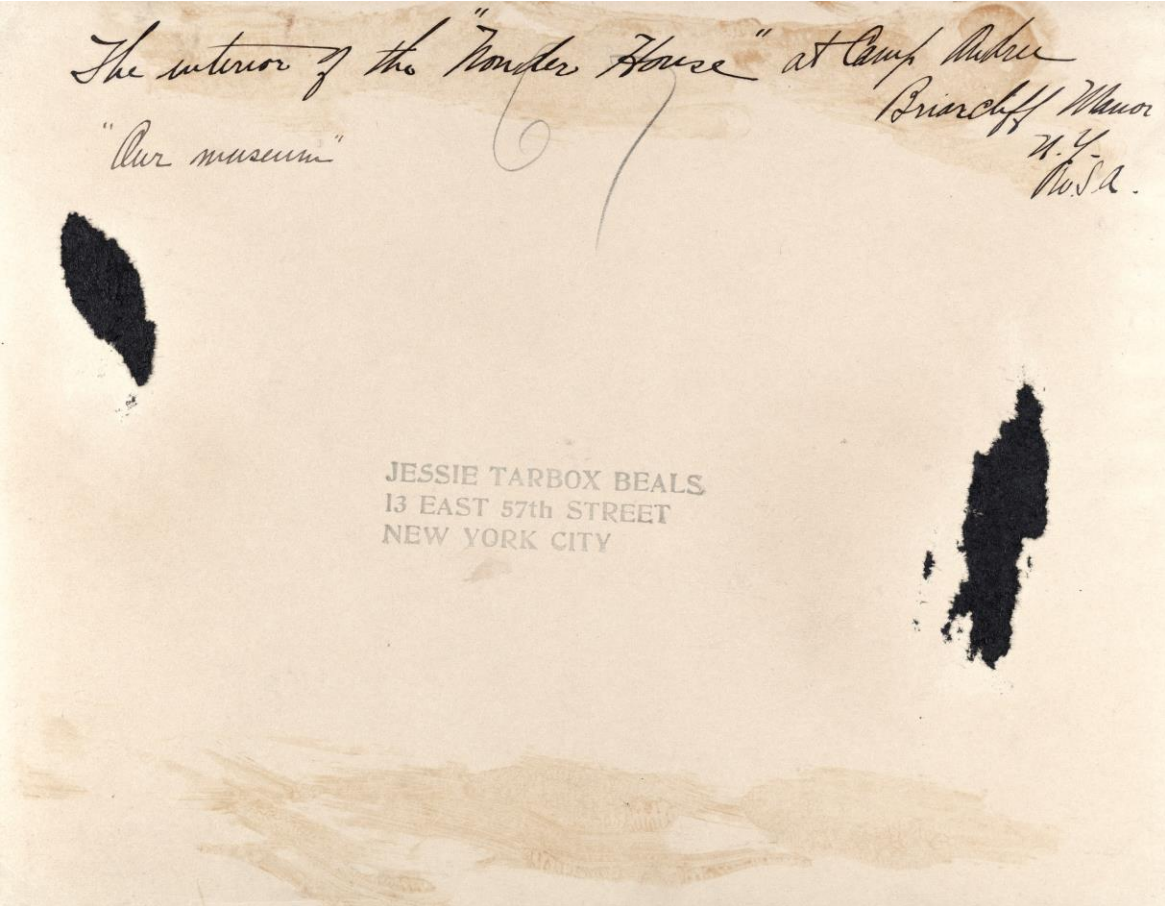 The interior of the "Wonder House" at Camp Andree
Briarcliff Manor
N.Y.
U.S.A.
"Our museum"
67
JESSIE TARBOX BEALS
13 EAST 57th STREET
NEW YORK CITY